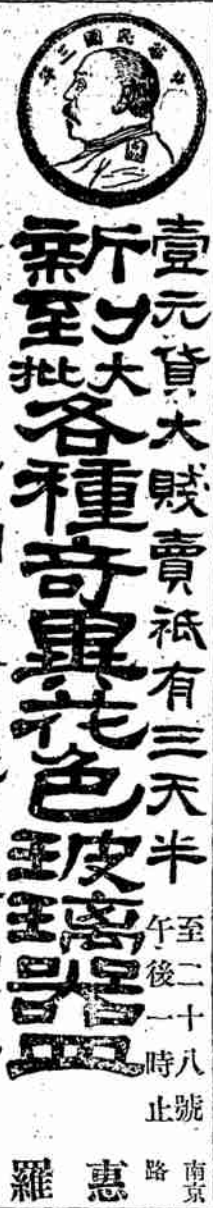 中華民國三年
壹元貨大賤賣祗有三天半
至二十八號
午後一時止
新到大批各種奇異花色玻璃器皿
南京路
惠羅